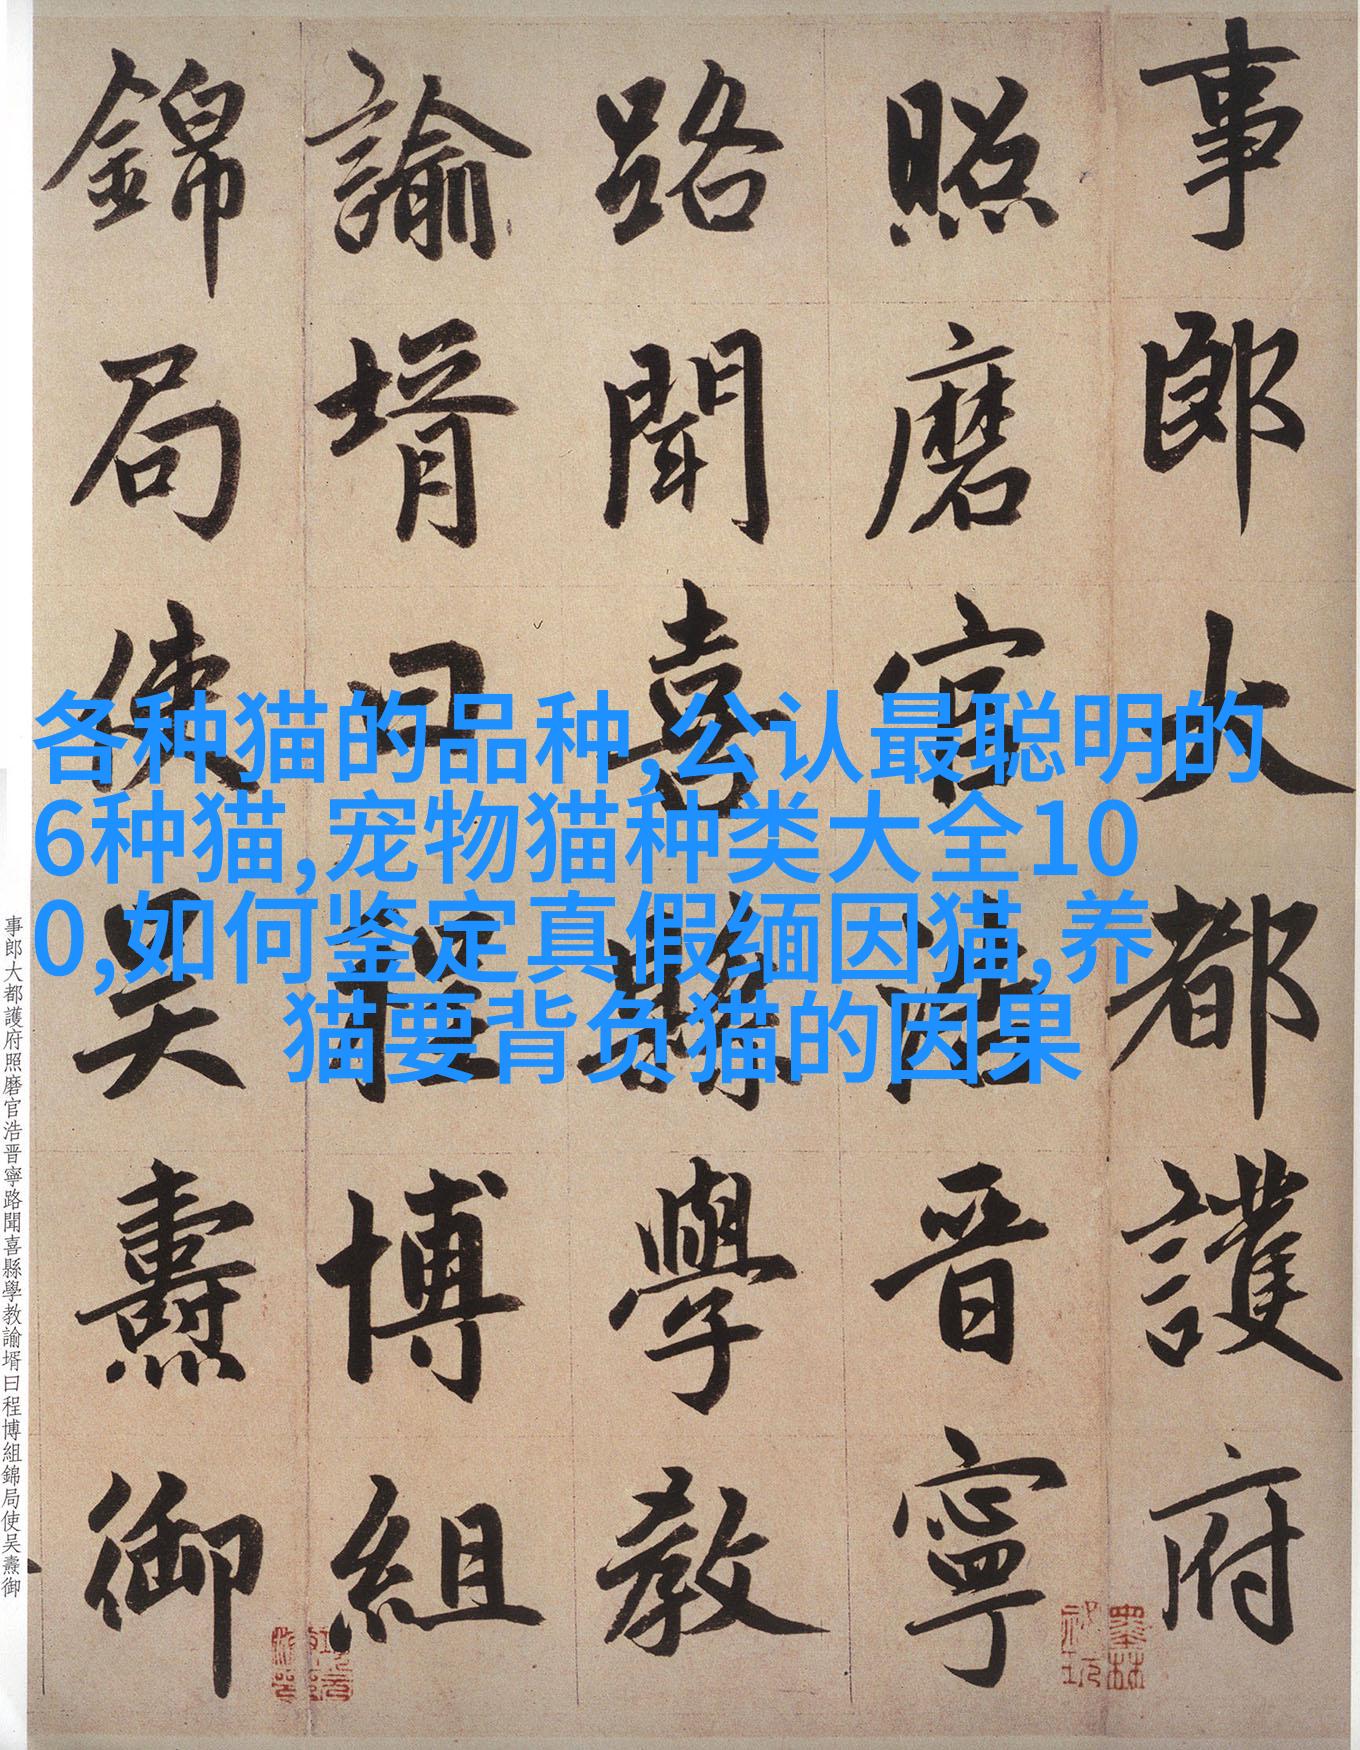 事郎大都護府
照磨官浩晋寧
路聞喜縣學教
諭壻曰程博組
錦局使吴燾御
各种猫的品种,公认最聪明的
6种猫,宠物猫种类大全10
0,如何鉴定真假缅因猫,养
猫要背负猫的因果
事郎大都護府照磨官浩晋寧路聞喜縣學教諭壻曰程博組錦局使吴燾御